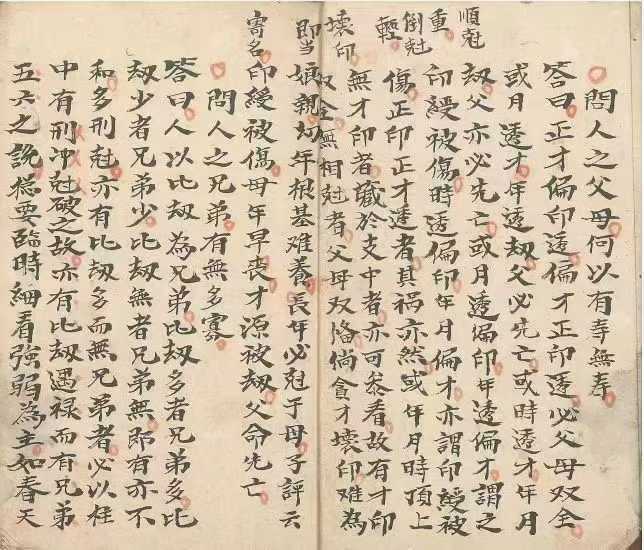 問人之父母何以有壽無壽
答曰正才偏印透偏才正印透必父母双全
或月透才年透刼父必先亡或時透才年月
刼父亦必先亡或月透偏印年透偏才謂之
順尅
印綬被傷時透偏印年月偏才亦謂印綬被
重
傷正印正才透者其禍亦然或年月時頂上
倒尅
輕
無才印者藏於支中者亦可叅看故有才印
双全無相尅者父母双俻倘貪才壞印難為
壞印
娘親幼年根基难養長年必尅于母子評云
即当
印綬被傷母年早喪才源被刼父命先亡
寄名
問人之兄弟有無多寡
答曰人以比刼為兄弟比刼多者兄弟多比
刼少者兄弟少比刼無者兄弟無即有亦不
和多刑尅亦有比刼多而無兄弟者必以柱
中有刑冲尅破之故亦有比刼遇禄而有兄弟
五六之說揔要臨時細看強弱為主如春天